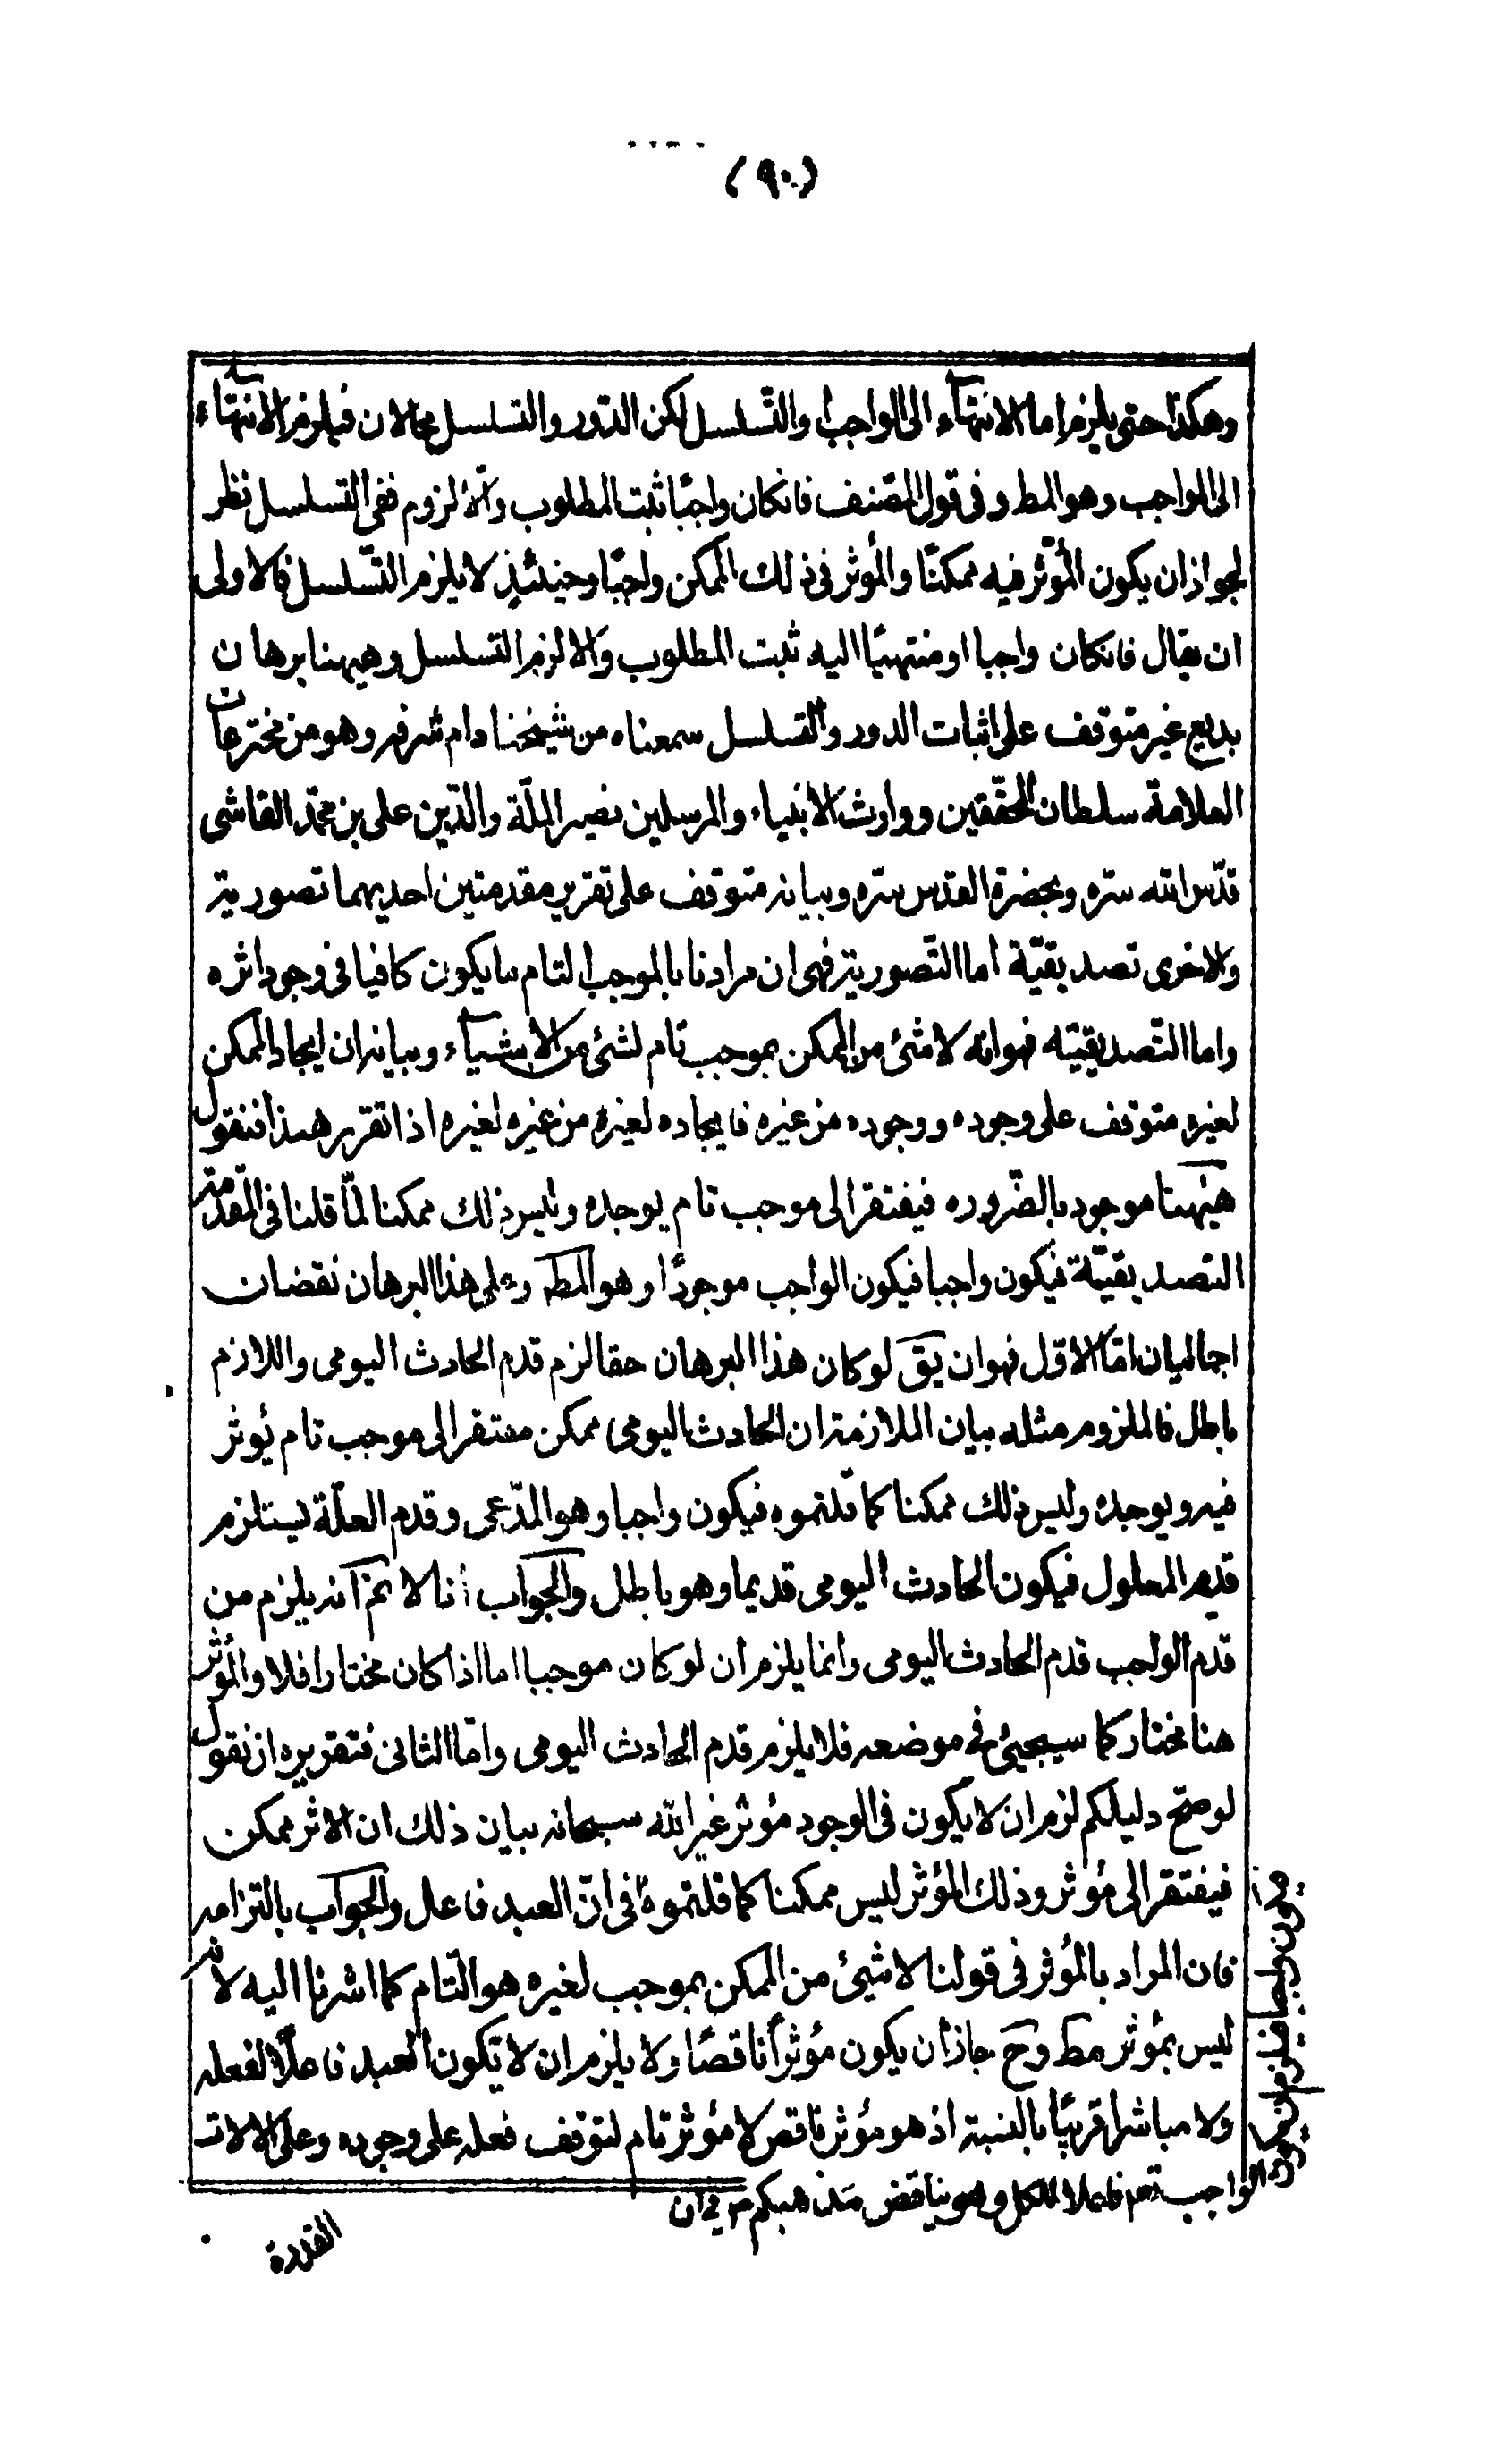 (٩٠)
وهكذا حتى يلزم اما الانتهاء الى الواجب او التسلسل لكن الدور والتسلسل محالان فيلزم الانتهاء
الى الواجب وهو المط وفى قول المصنف فانكان واجبًا ثبت المطلوب والّا لزوم ففى التسلسل نظر
لجواز ان يكون المؤثر فيه ممكنًا والمؤثر فى ذلك الممكن واجبًا وحينئذٍ لا يلزم التسلسل فالاولى
ان يقال فانكان واجبا او منتهيًا اليه ثبت المطلوب والا لزم التسلسل وهيهنا برهان
بديع غير متوقف على اثبات الدور والتسلسل سمعناه من شيخنا دام شرفه وهو من مخترعات
العلامة سلطان المحققين ووارث الانبياء والمرسلين نصير الملّة والدّين على بن محمّد القاشى
قدّس الله سرّه وبحضرة القدس سرّه وبيانه متوقف على تقرير مقدمتين احديهما تصوريّة
والاخرى تصديقيّة اما التّصوريّة فهى ان مرادنا بالموجب التام ما يكون كافيا فى وجود اثره
واما التّصديقيّه فهو انّه لا شئ من الممكن بموجب تام لشئ من الاشياء وبيانه ان ايجاد الممكن
لغيره متوقف على وجوده ووجوده من غيره فايجاده لغيره من غيره لغيره اذا تقرر هذا فنقول
هيهنا موجود بالضّروره فيفتقر الى موجب تام يوجده وليس ذلك ممكنا لمّا قلنا فى المقدّمة
التصديقيّة فيكون واجبا فيكون الواجب موجودًا وهو المط وعلى هذا البرهان نقضان
اجماليان امّا الاوّل فهو ان يق لو كان هذا البرهان حقا لزم قدم الحادث اليومى واللازم
باطل فالملزوم مثله بيان الملازمة ان الحادث اليومى ممكن مفتقر الى موجب تام يُوثر
فيه ويوجده وليس ذلك ممكنا كما قلتموه فيكون واجبا وهو المدّعى وقدم العلّة يستلزم
قدم المعلول فيكون الحادث اليومى قديما وهو باطل والجواب انا لا نم انه يلزم من
قدم الواجب قدم الحادث اليومى وانما يلزم ان لو كان موجبا اما اذا كان مختارا فلا والمؤثر
هنا مختار كما سيجئ فى موضعه فلا يلزم قدم الحادث اليومى وامّا الثانى فتقريره ان نقول
لو صحّ دليلكم لزم ان لا يكون فى الوجود مؤثر غير الله سبحانه بيان ذلك ان الاثر ممكن
فيفتقر الى مؤثر وذلك المؤثر ليس ممكنا كما قلتموهُ فى انّ العبد فاعل والجواب بالتزامه
فان المراد بالمؤثر فى قولنا لا شيئ من الممكن بموجب لغيره هو التّام كما اشرنا اليه لا انه
ليس بمُوثر مط وح جاز ان يكون مؤثراً ناقصًا ولا يلزم ان لا تكون العبد فاعلًا لفعله
ولا مباشرا قريبًا بالنسبة اذ هو مؤثر ناقص لا مؤثر تام لتوقف فعله على وجوده وعلى الالات
الواجب تعم فاعلا للكل وهو يناقض مذهبكم من ان
القدرة